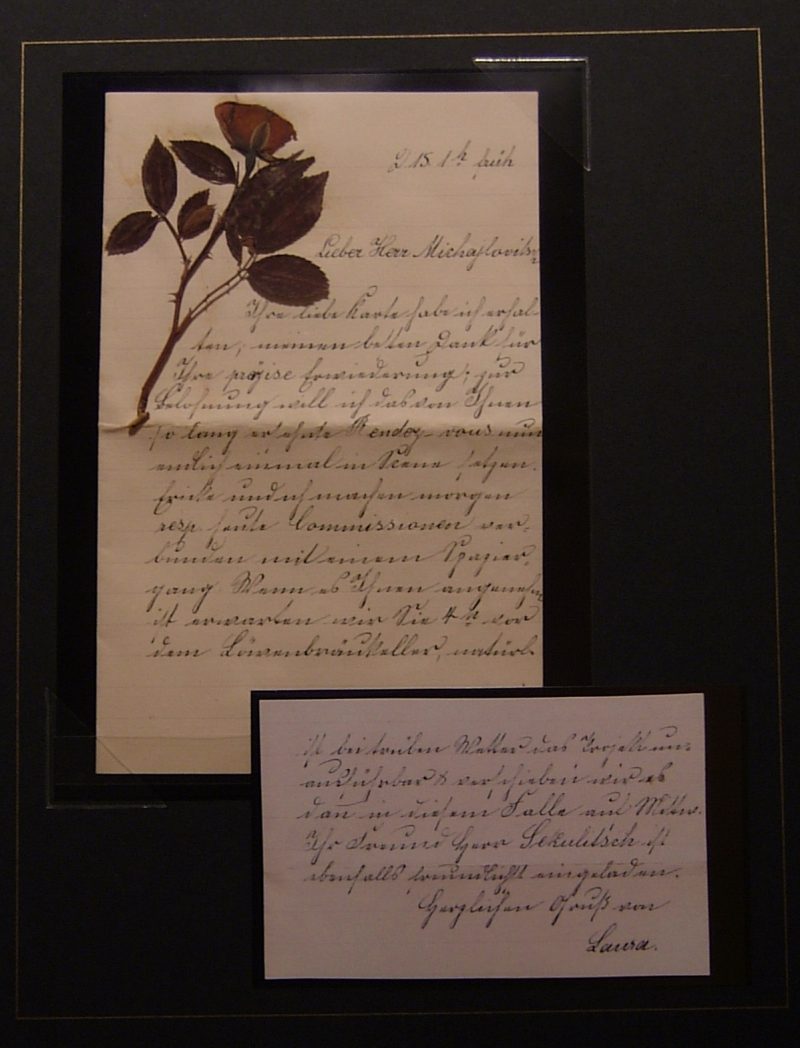 15. 1 h früh
Lieber Herr Michajlovits
Ihre liebe Karte habe ich erhal-
ten, meinen besten Dank für
Ihre präzise Erwiederung; zur
Belohnung will ich das von Ihnen
so lang ersehnte Rendez-vous nun
endlich einmal in Scene setzen.
und ich machen morgen
resp. heute Commissionen ver-
bunden mit einem Spazier-
gang. Wenn es Ihnen angenehm
ist erwarten wir Sie 4 h vor
dem Löwenbräukeller, natürl.
ist bei trüben Wetter das Projekt un-
ausführbar & verschieben wir es
dan̄ in diesem Falle auf Mittw.
Ihr Freund Herr Sekulitsch ist
ebenfalls freundlichst eingeladen.
Herzlichen Gruß von
Laura.